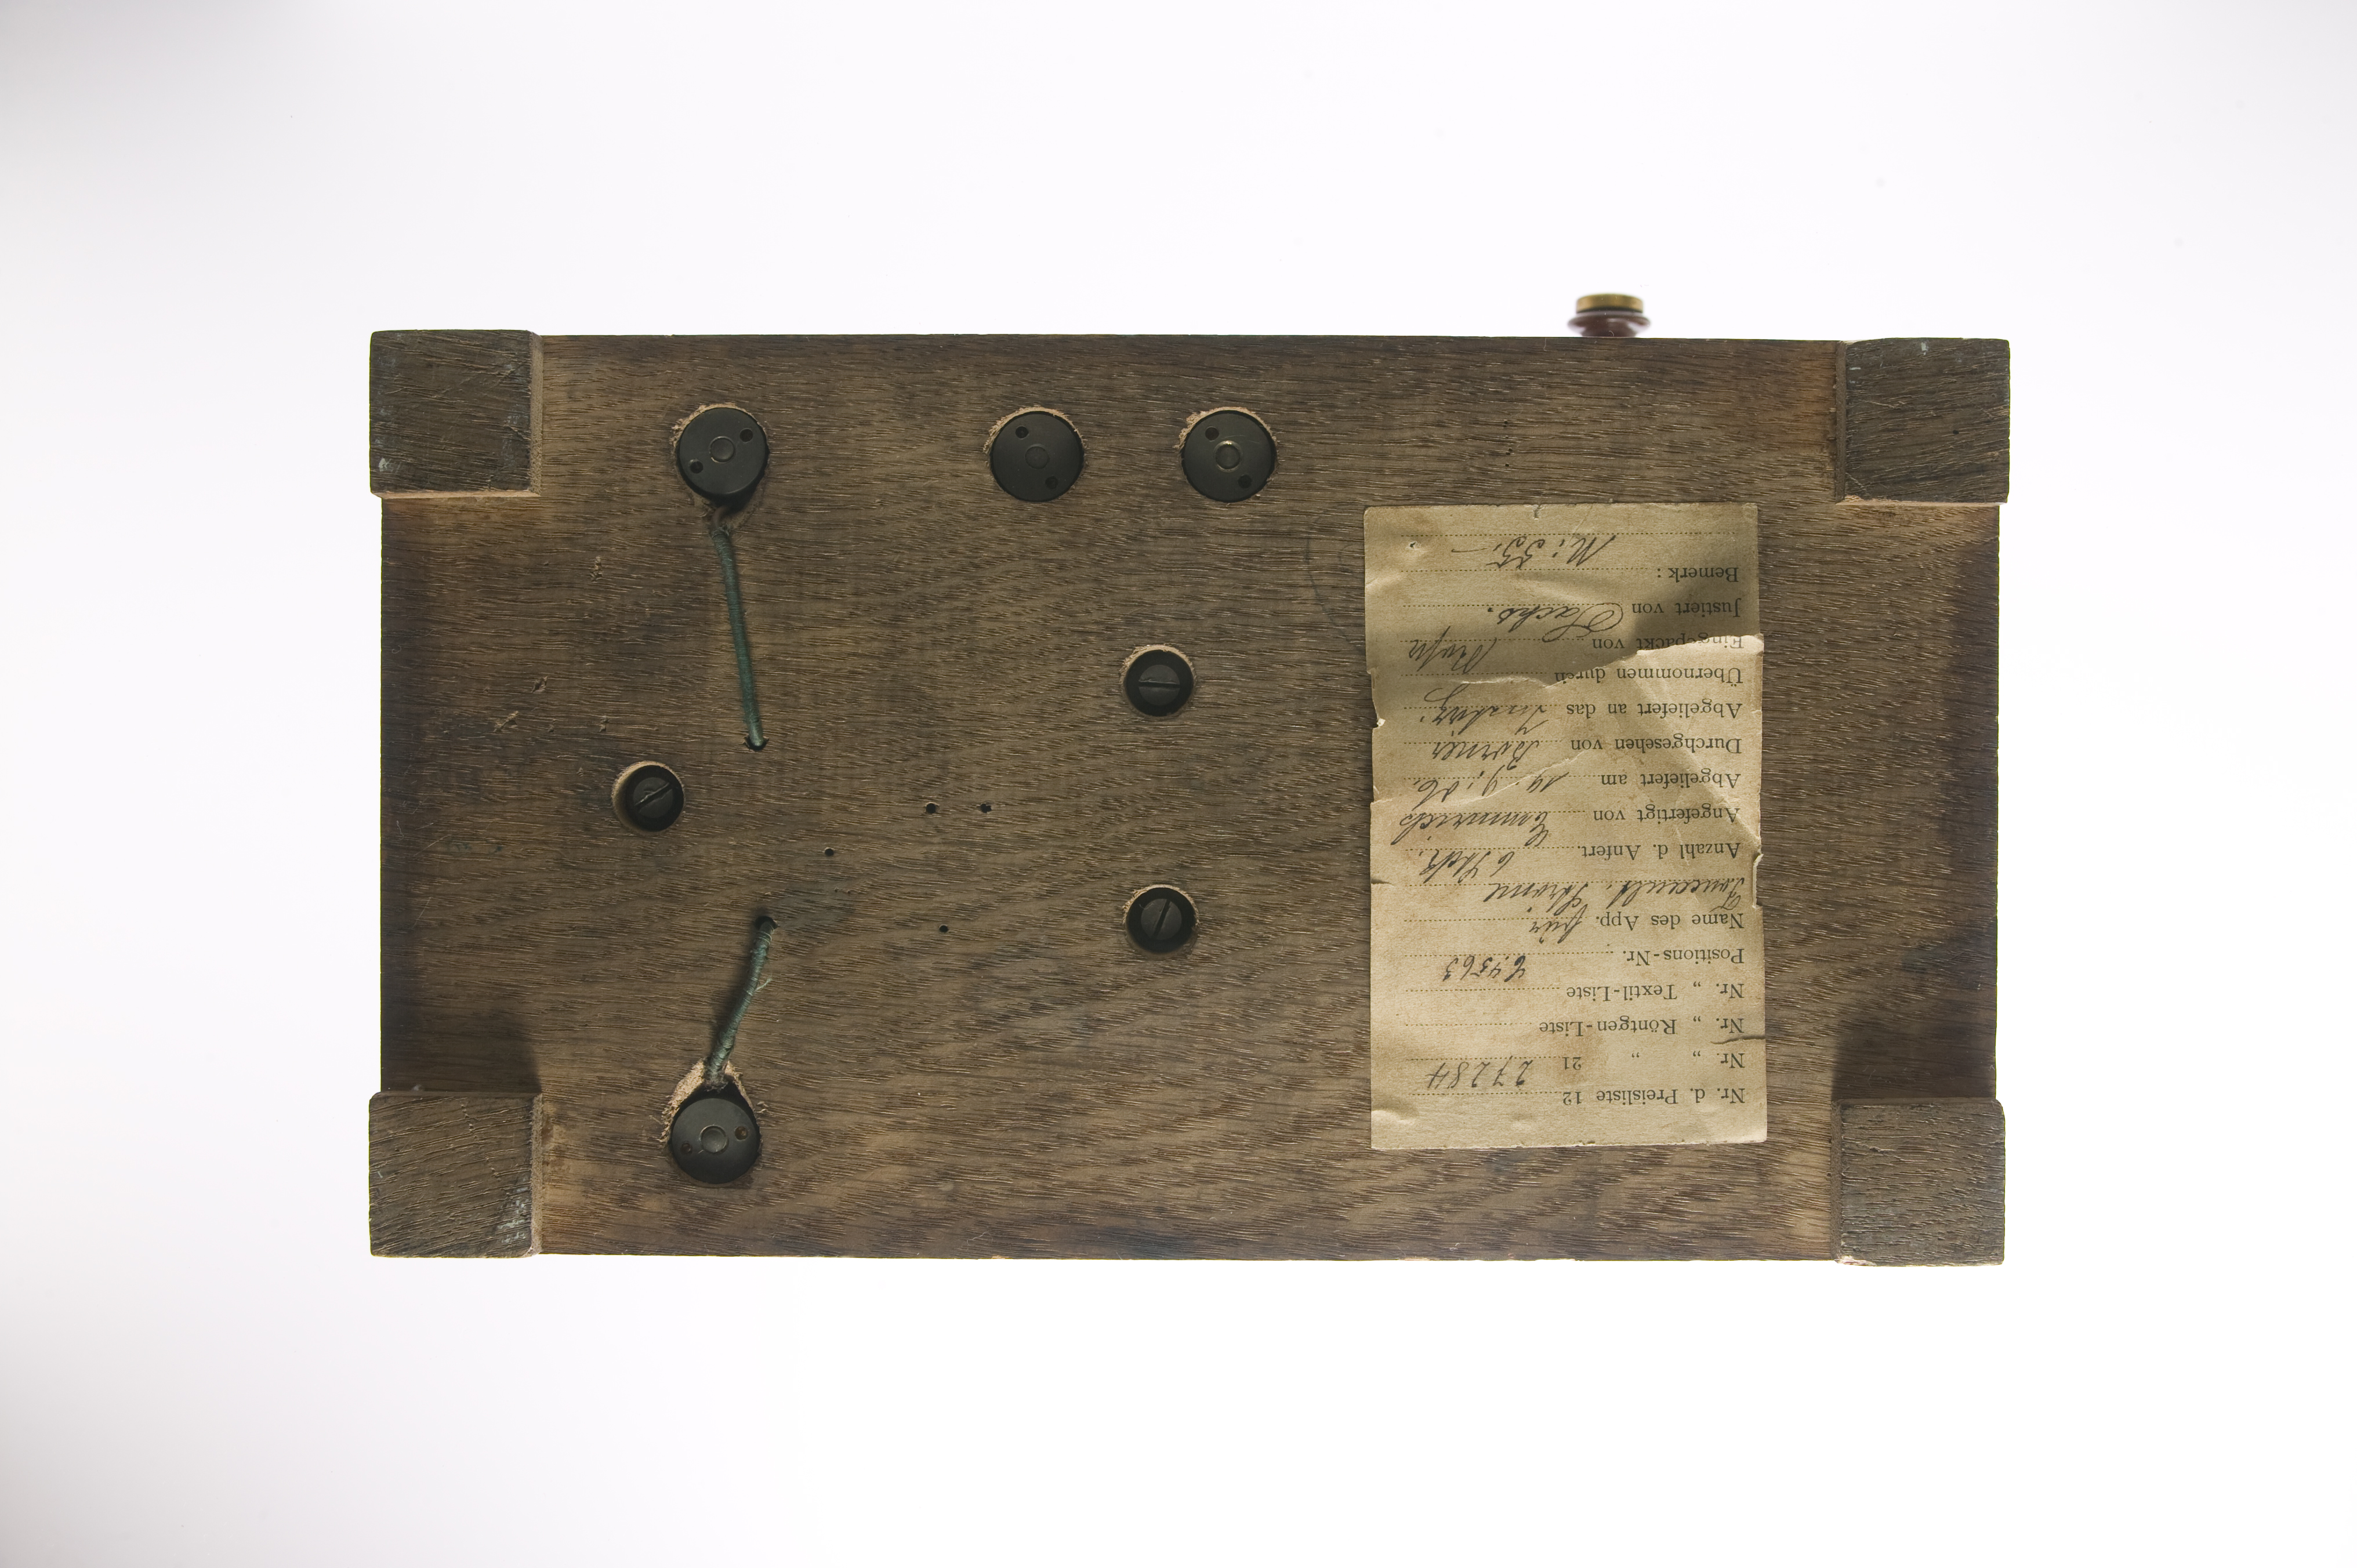 Nr. d. Preisliste 12 27284
Nr. „ „ 21
Nr. „ Röntgen-Liste
Nr. „ Textil-Liste
Positions-Nr. 64563
Name des App. für
Foucault. Ströme
Anzahl d. Anfert. 6 Stck.
Angefertigt von Emmrich
Abgeliefert am 19.9.06.
Durchgesehen von Börner
Abgeliefert an das
Übernommen durch
Eingepackt von
Justiert von Sachs.
Bemerk:
M: 55.—